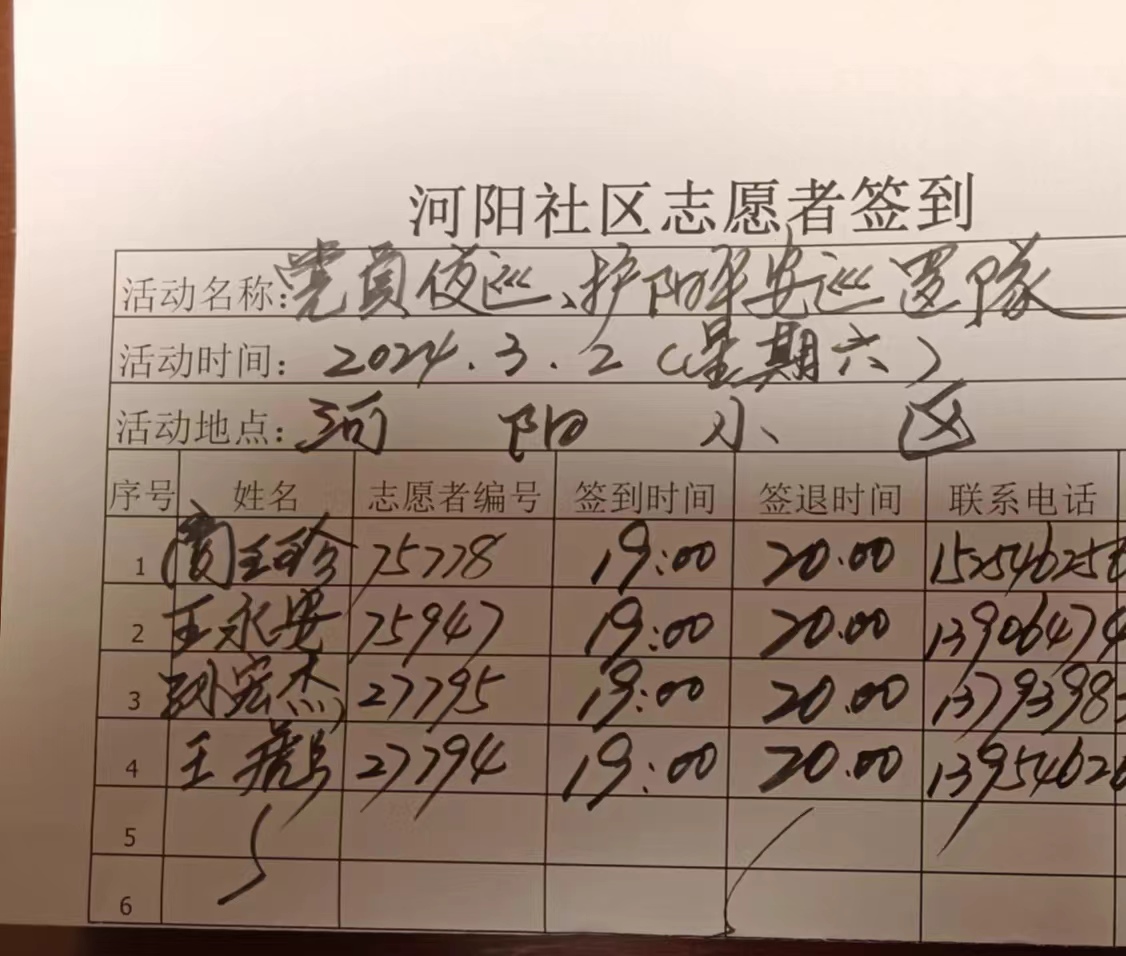 河阳社区志愿者签到
活动名称:党员夜巡、护阳平安巡逻队
活动时间: 2024.3.2(星期六)
活动地点: 河 阳 小 区
序号 姓名 志愿者编号 签到时间 签退时间 联系电话
1 75778 19:00 20.00 152546258
2 王永安 75947 19:00 20.00 13906474
3 孙宏杰 27795 19:00 20.00 1379398
4 王 27794 19:00 20.00 13954626
5
6